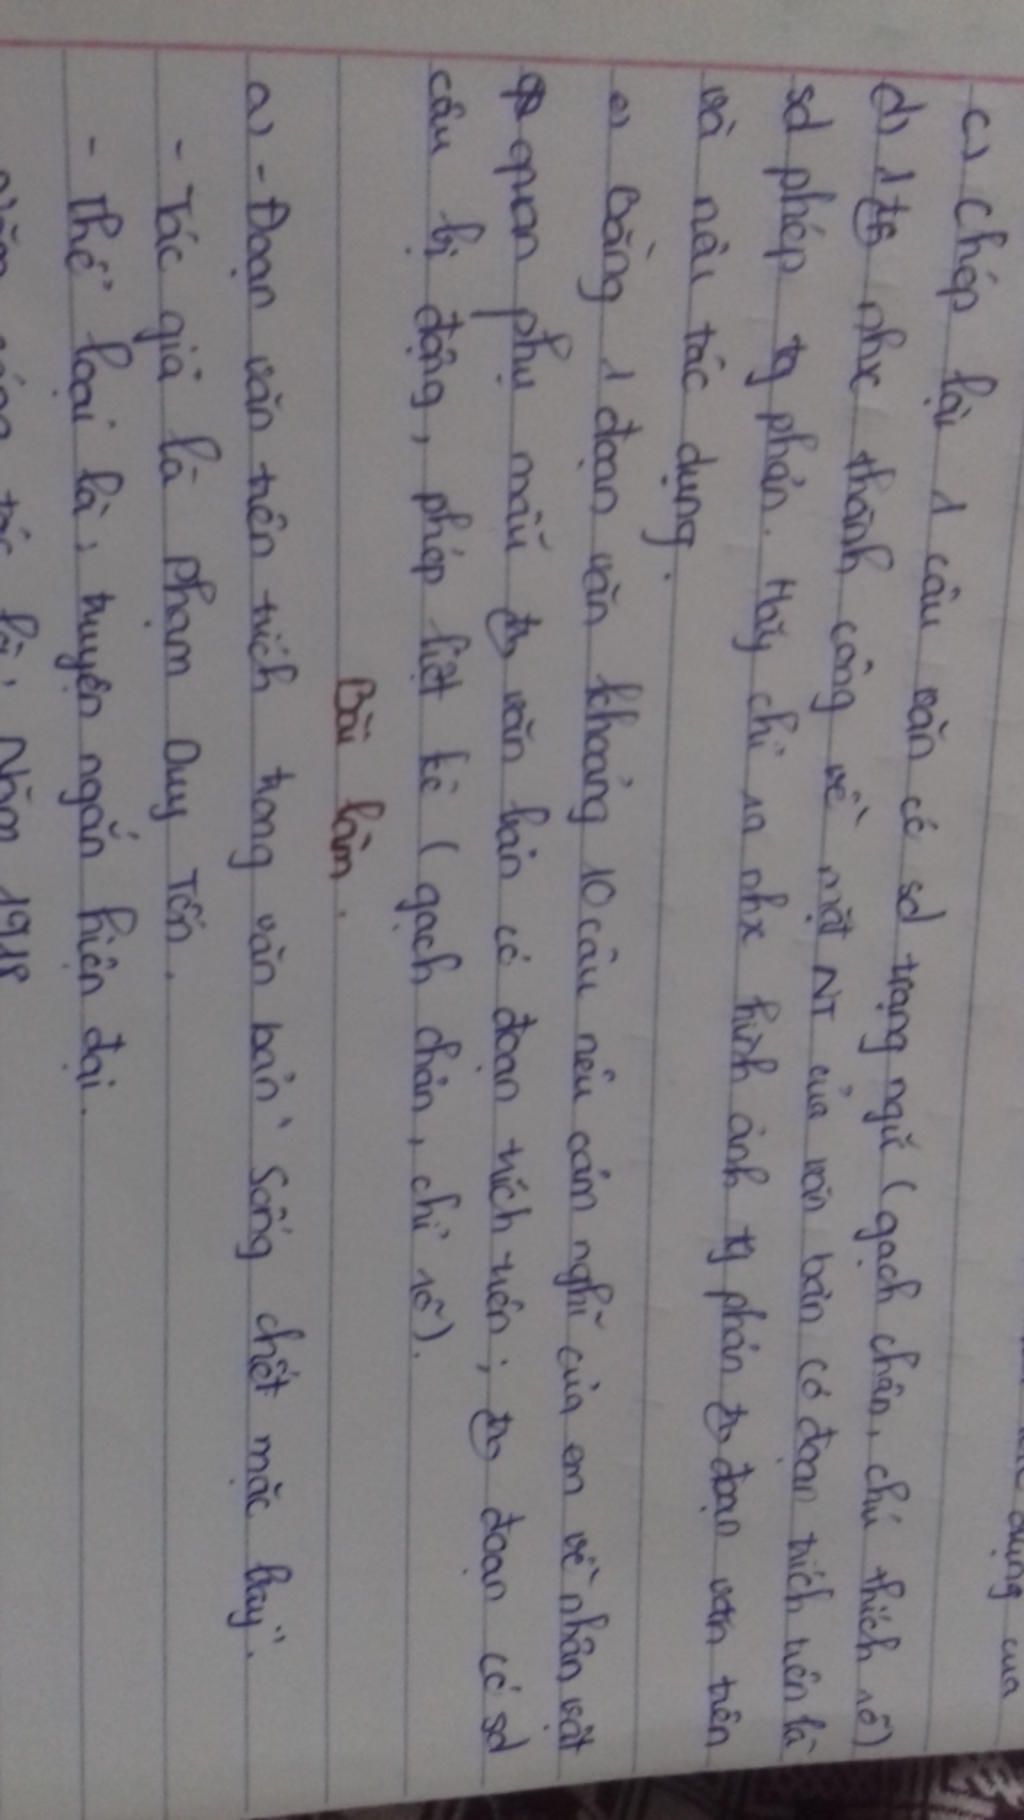 dụng của
c) Chép lại 1 câu văn có sd trạng ngữ (gạch chân, chú thích rõ)
d) 1 nhx thành công về mặt NT của văn bản có đoạn trích trên là
sd phép tg phản. Hãy chỉ ra nhx hình ảnh tg phản tr đoạn văn trên
và nêu tác dụng.
e) Bằng 1 đoạn văn khoảng 10 câu nêu cảm nghĩ của em về nhân vật
quan phụ mẫu tr văn bản có đoạn trích trên; tr đoạn có sd
câu bị động, phép liệt kê (gạch chân, chỉ rõ).
Bài làm.
a) - Đoạn văn trên trích trong văn bản "Sống chết mặc bay".
- Tác giả là Phạm Duy Tốn.
- Thể loại là: truyện ngắn hiện đại.
năm sáng tác là: Năm 1918